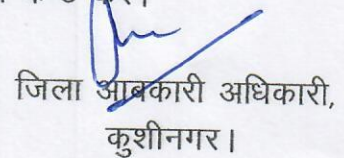 जिला आबकारी अधिकारी,
कुशीनगर।